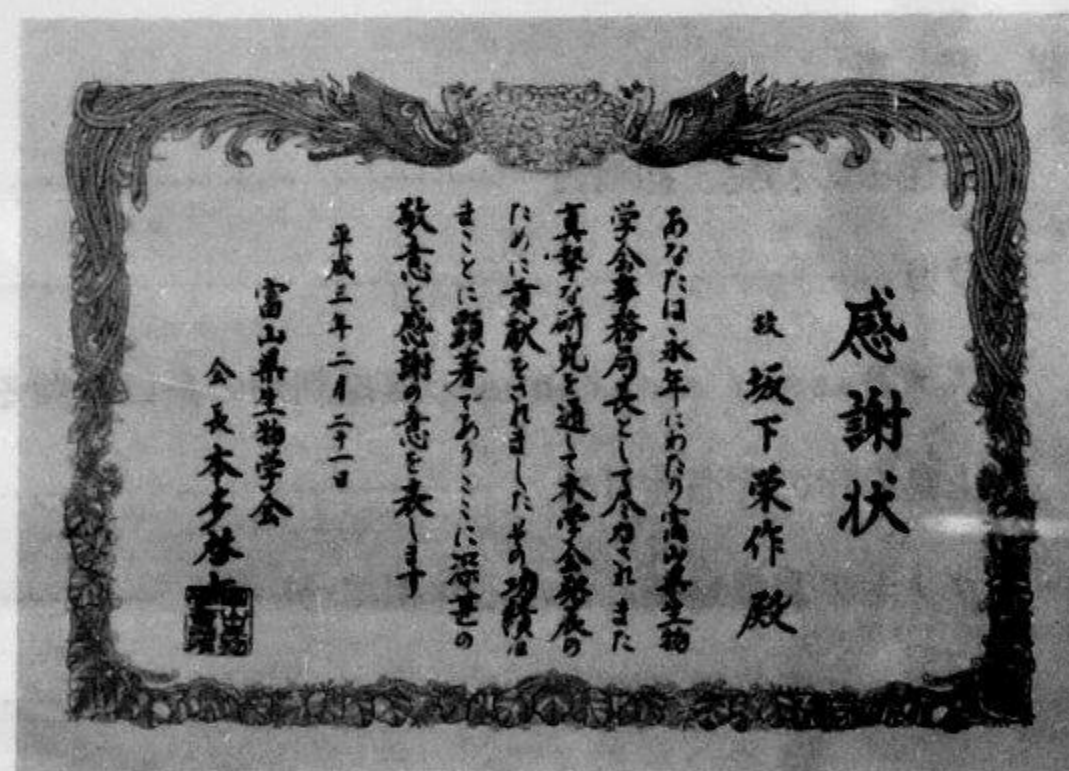 感謝状
故 坂下栄作 殿
あなたは永年にわたり富山県生物
学会事務局長として尽力され また
真摯な研究を通して本学会発展の
ために貢献をされました その功績は
まことに顕著であり ここに深甚の
敬意と感謝の意を表します
平成三年二月二十一日
富山県生物学会
会長 本多啓